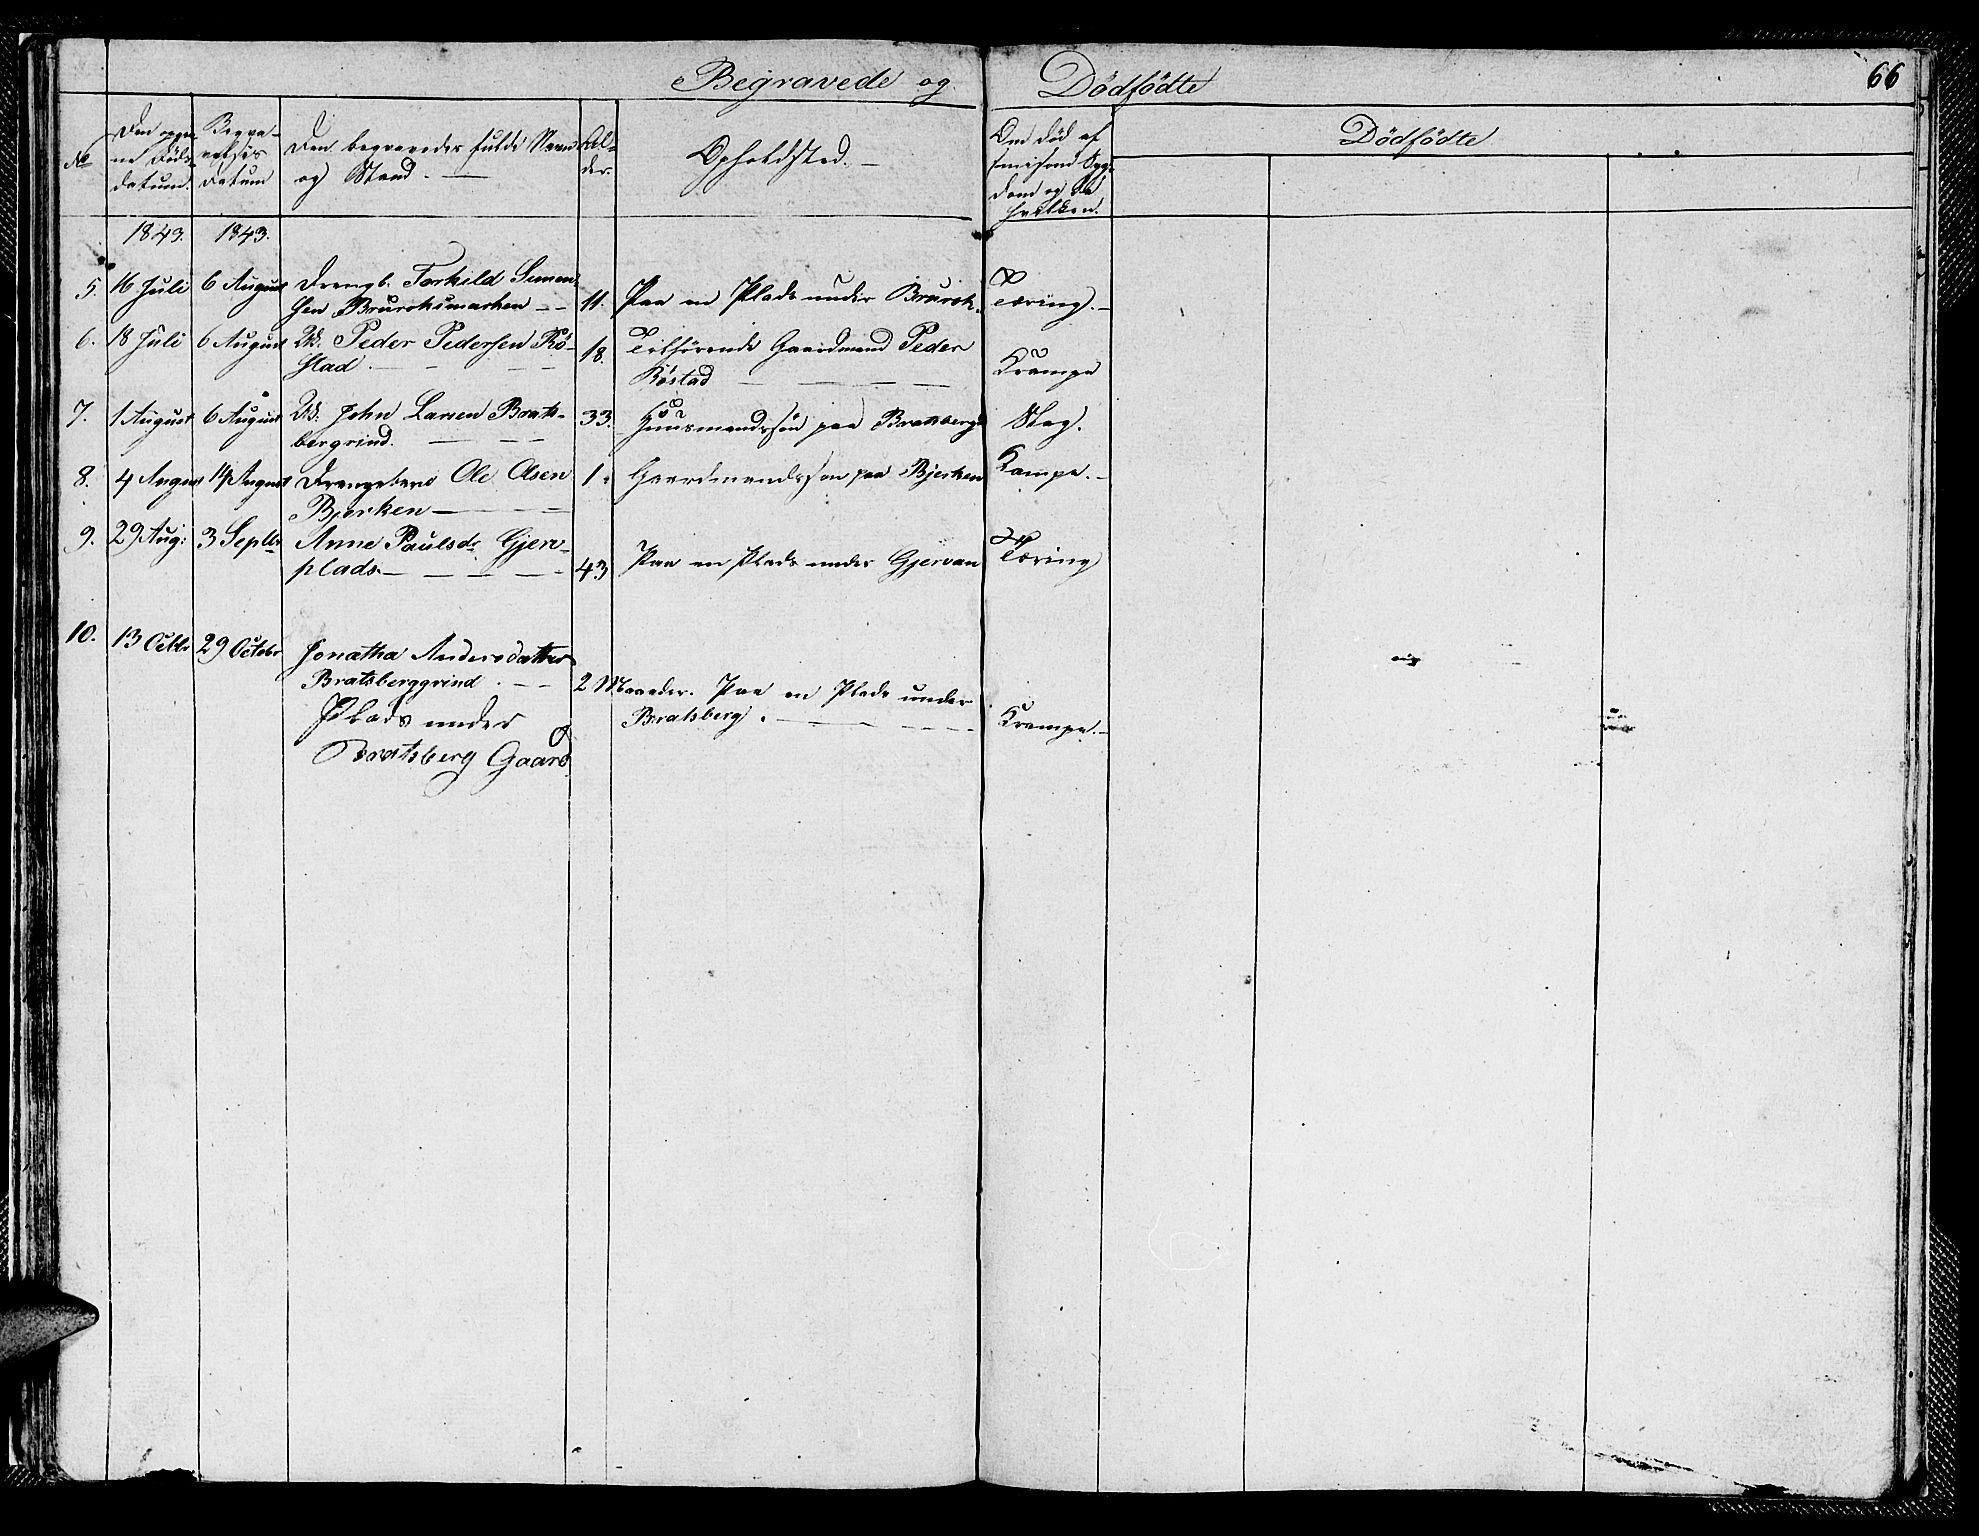 Begravede og Dödfödte
66
No
Den opgivne Döds datum.
Begravelses Datum
Den begravedes fulde Navn og Stand.
Alder.
Opholdsted.
Om död af smitsom Sygdom og da hvilken.
Dödfödte
1843. 1843.
5. 16 Juli 6 August Drengb. Torkild Simen-
sen Brurokmarken 11. Paa en Plads under Brurok. Tæring.
6. 18 Juli 6 August Uk. Peder Pedersen Rö-
stad 18. Tilhörende Gaardmand Peder
Röstad Krampe
7. 1 August 6 August Uk. John Larsen Brats-
berggrind. 33. Huusmandssön paa Bratsberg Slag.
8. 4 August 14 August Drengebarn Ole Olsen
Bjerken 1. Gaardmandsson paa Bjerken Kampe.
9. 29 Aug: 3 Septbr Anne Paulsdr Gjerv-
plads. 43 Paa en Plads under Gjervan Tæring
10. 13 Octbr 29 Octobr Jonetha Andersdatter
Bratsberggrind. 2 Maaneder. Paa en Plads under
Plads under Bratsberg. Krampe.
Bratsberg Gaard